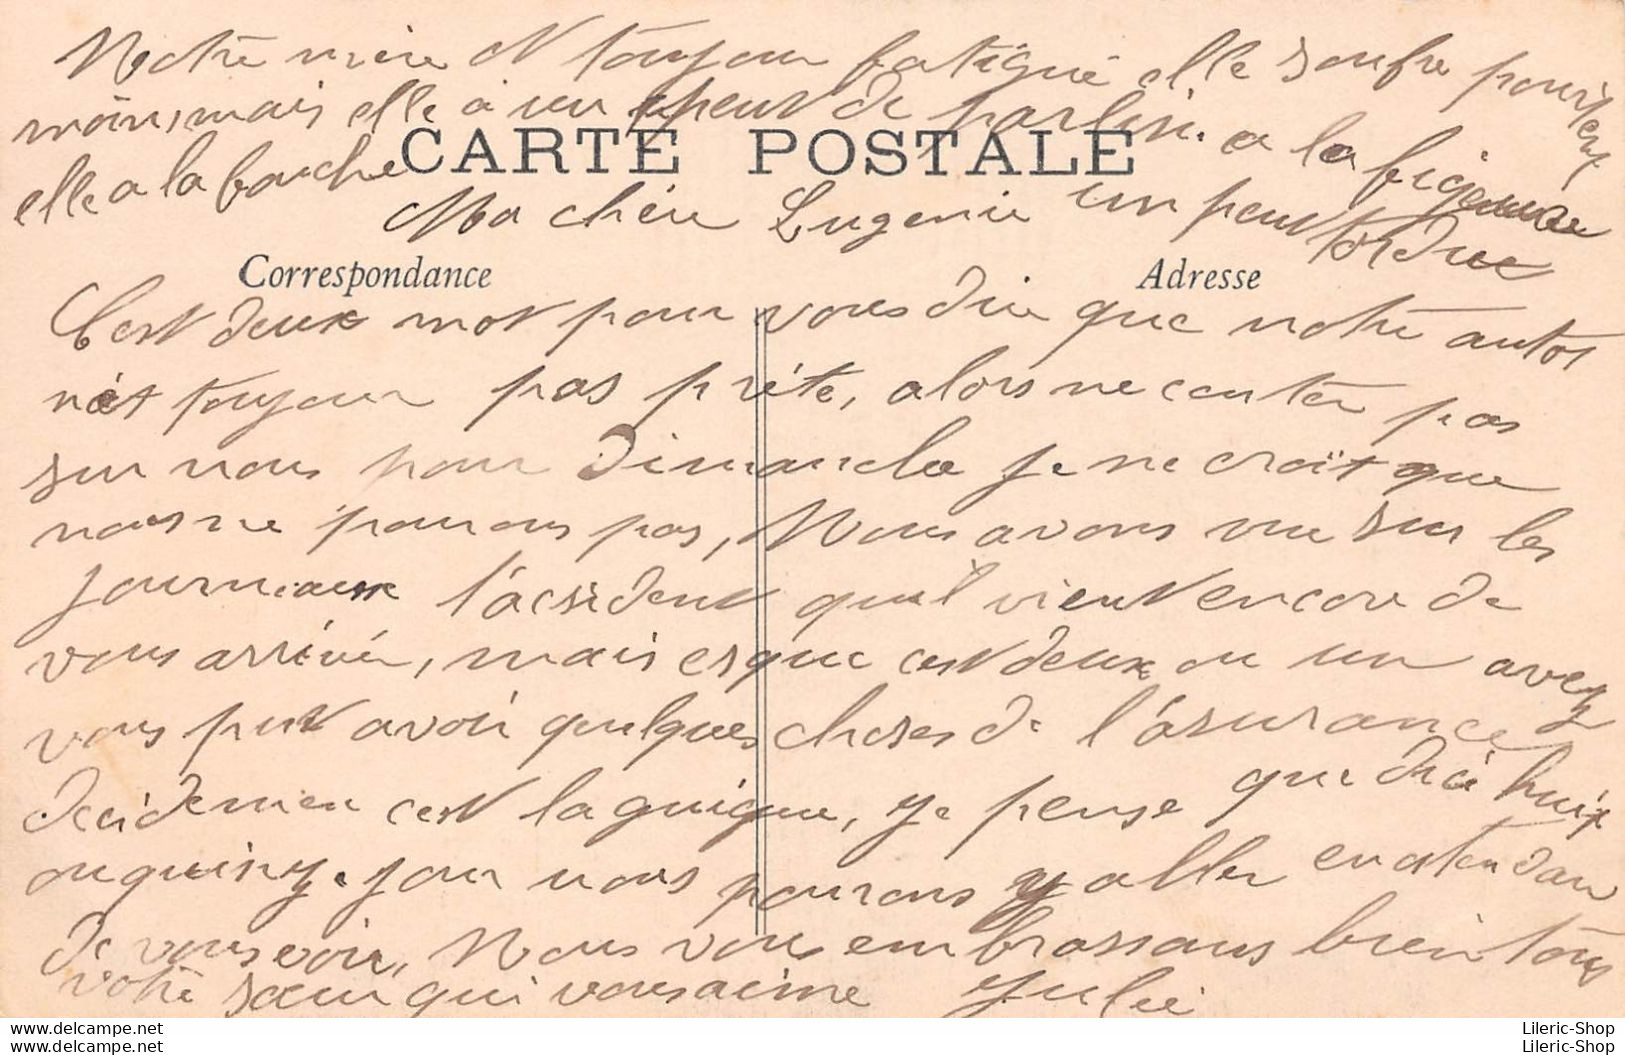 Notre mère et toujour fatigué elle soufre
moin, mais elle a un peut de
elle a la bouche
CARTE POSTALE
un peut tordue
Ma chère Eugenie
Correspondance
Adresse
C'est deux mot pour vous dire que notre autos
n'ét toujour pas préte, alors ne conter pas
sur nous pour Dimanche je ne croit que
nous ne pourons pas, Nous avons vue sur les
journeaux l'acsident qu'il vient encore de
vous arrivér, mais esque c'est deux ou un avez
vous put avoir quelques choses de l'asurance
decidemen c'est la guigne, je pense que dici huix
ou quinz. jour nous pourons y aller en atendan
de vous voir, Nous vous embrassons bien tous
votre sœur qui vous aime Julie
www.delcampe.net
www.delcampe.net
Lileric-Shop
Lileric-Shop